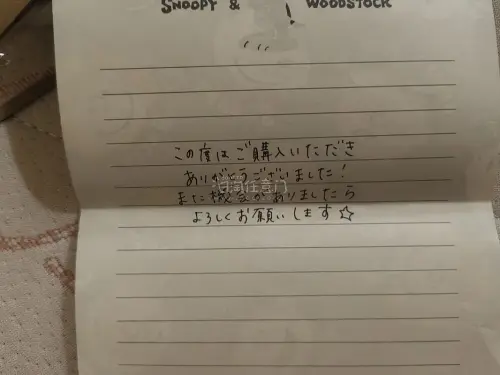 SNOOPY & WOODSTOCK
この度はご購入いただき
ありがとうございました!
また機会がありましたら
よろしくお願いします☆